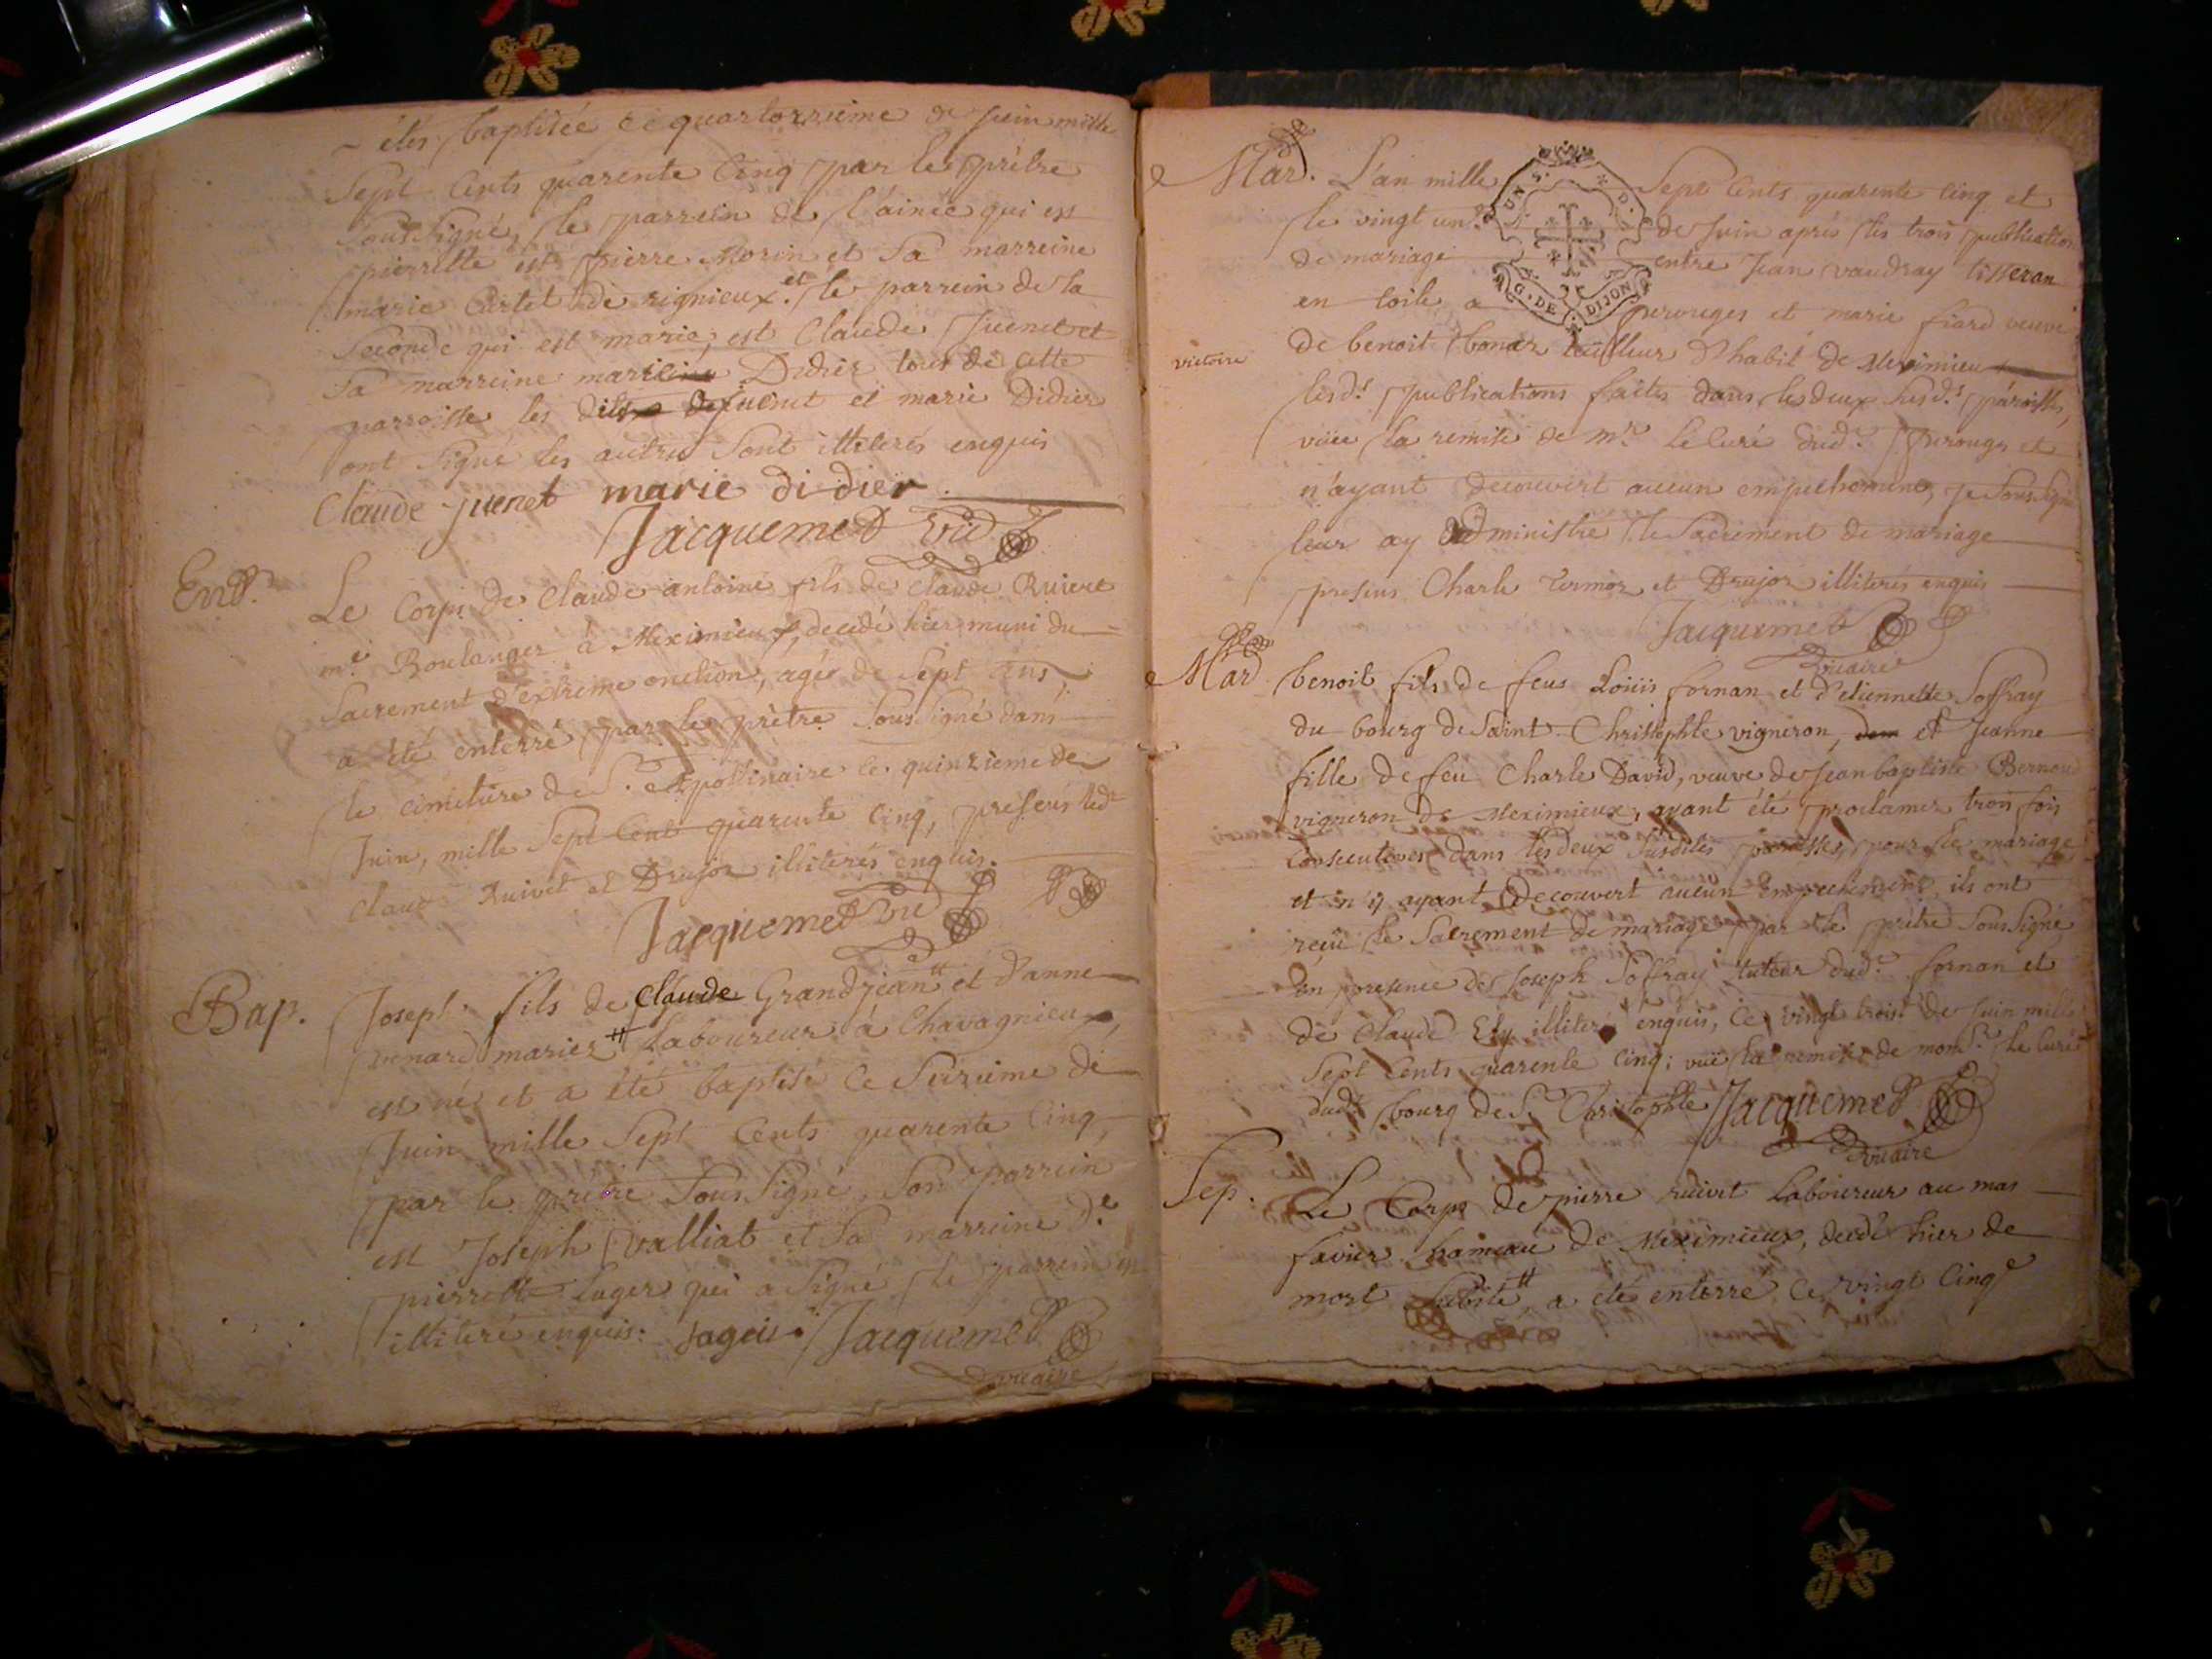 étés baptisée ce quartorzieme de Juin mille
Sept Cents quarente Cinq par le prêtre
Soussigné, le parrein de l'ainée qui est
pierrette est pierre Morin et Sa marreine
marie Curtet de rignieux. et le parrein de la
Seconde qui est marie, est Claude Juenet et
Sa marreine marie Didier tous de cette
parroisse les dits Juenet et marie Didier
ont Signé les autres Sont illiterés enquis
Claude juenet marie didier
Jacquemet vic
Ent.
Le Corps de Claude antoine fils de Claude Ruivet
me. Boulanger à Meximieux, decedé hier muni du
Sacrement d'extreme onction, agé de Sept ans,
a été enterré par le prêtre Soussigné dans
le cimetiere de St. Appollinaire le quinzième de
Juin, mille Sept Cent quarente Cinq, presens led.
Claude Ruivet et Drujon illiterés enquis.
Jacquemet vic
Bap.
Joseph fils de Claude Grandjean et d'anne
venard mariez Laboureur à Chavagnieux,
est né et a été baptisé ce Seizieme de
Juin mille Sept Cents quarente Cinq,
par le prêtre Soussigné, Son parrein
est Joseph valliat et Sa marreine de.
pierrette Luger qui a Signé le parrein
illiteré enquis. Jacquemet
vicaire
Mar. L'an mille Sept Cents quarente Cinq et
le vingt un de Juin aprés les trois publications
UNS. D. G. DE DIJON
de mariage entre Jean vaudray tisseran
en toile a perouges et marie fiard veuve
de benoit bonaz tailleur d'habit de Meximieux
victoire
lesd. publications faites dans les deux susd. paroisses,
vüe la remise de mr. le Curé dud. perouges et
n'ayant decouvert aucun empechement, je Soussigné
leur ay administré le Sacrement de mariage
presens Charle termoz et Drujon illiterés enquis
Jacquemet
vicaire
Mar. benoit fils de feus Loüis fornan et d'etiennette Soffray
du bourg de Saint Christophle vigneron, et Jeanne
fille de feu Charle David, veuve de Jean baptiste Bernou
vigneron de Meximieux, ayant été proclamez trois fois
Consecutives dans les deux susdites paroisses, pour le mariage
et n'y ayant decouvert aucun empechement, ils ont
reçü le Sacrement de mariage par le prêtre Soussigné
en presence de Joseph Soffray tuteur dud. fornan et
de Claude Ely illiterés enquis, Ce vingt trois de Juin mille
Sept Cents quarente Cinq; vüe la remise de mons. le Curé
dud. bourg de St. Christophle Jacquemet
vicaire
Sep. Le Corps de pierre ruivet Laboureur au mas
favier hameau de Meximieux, decedé hier de
mort Subite, a été enterré ce vingt Cinq